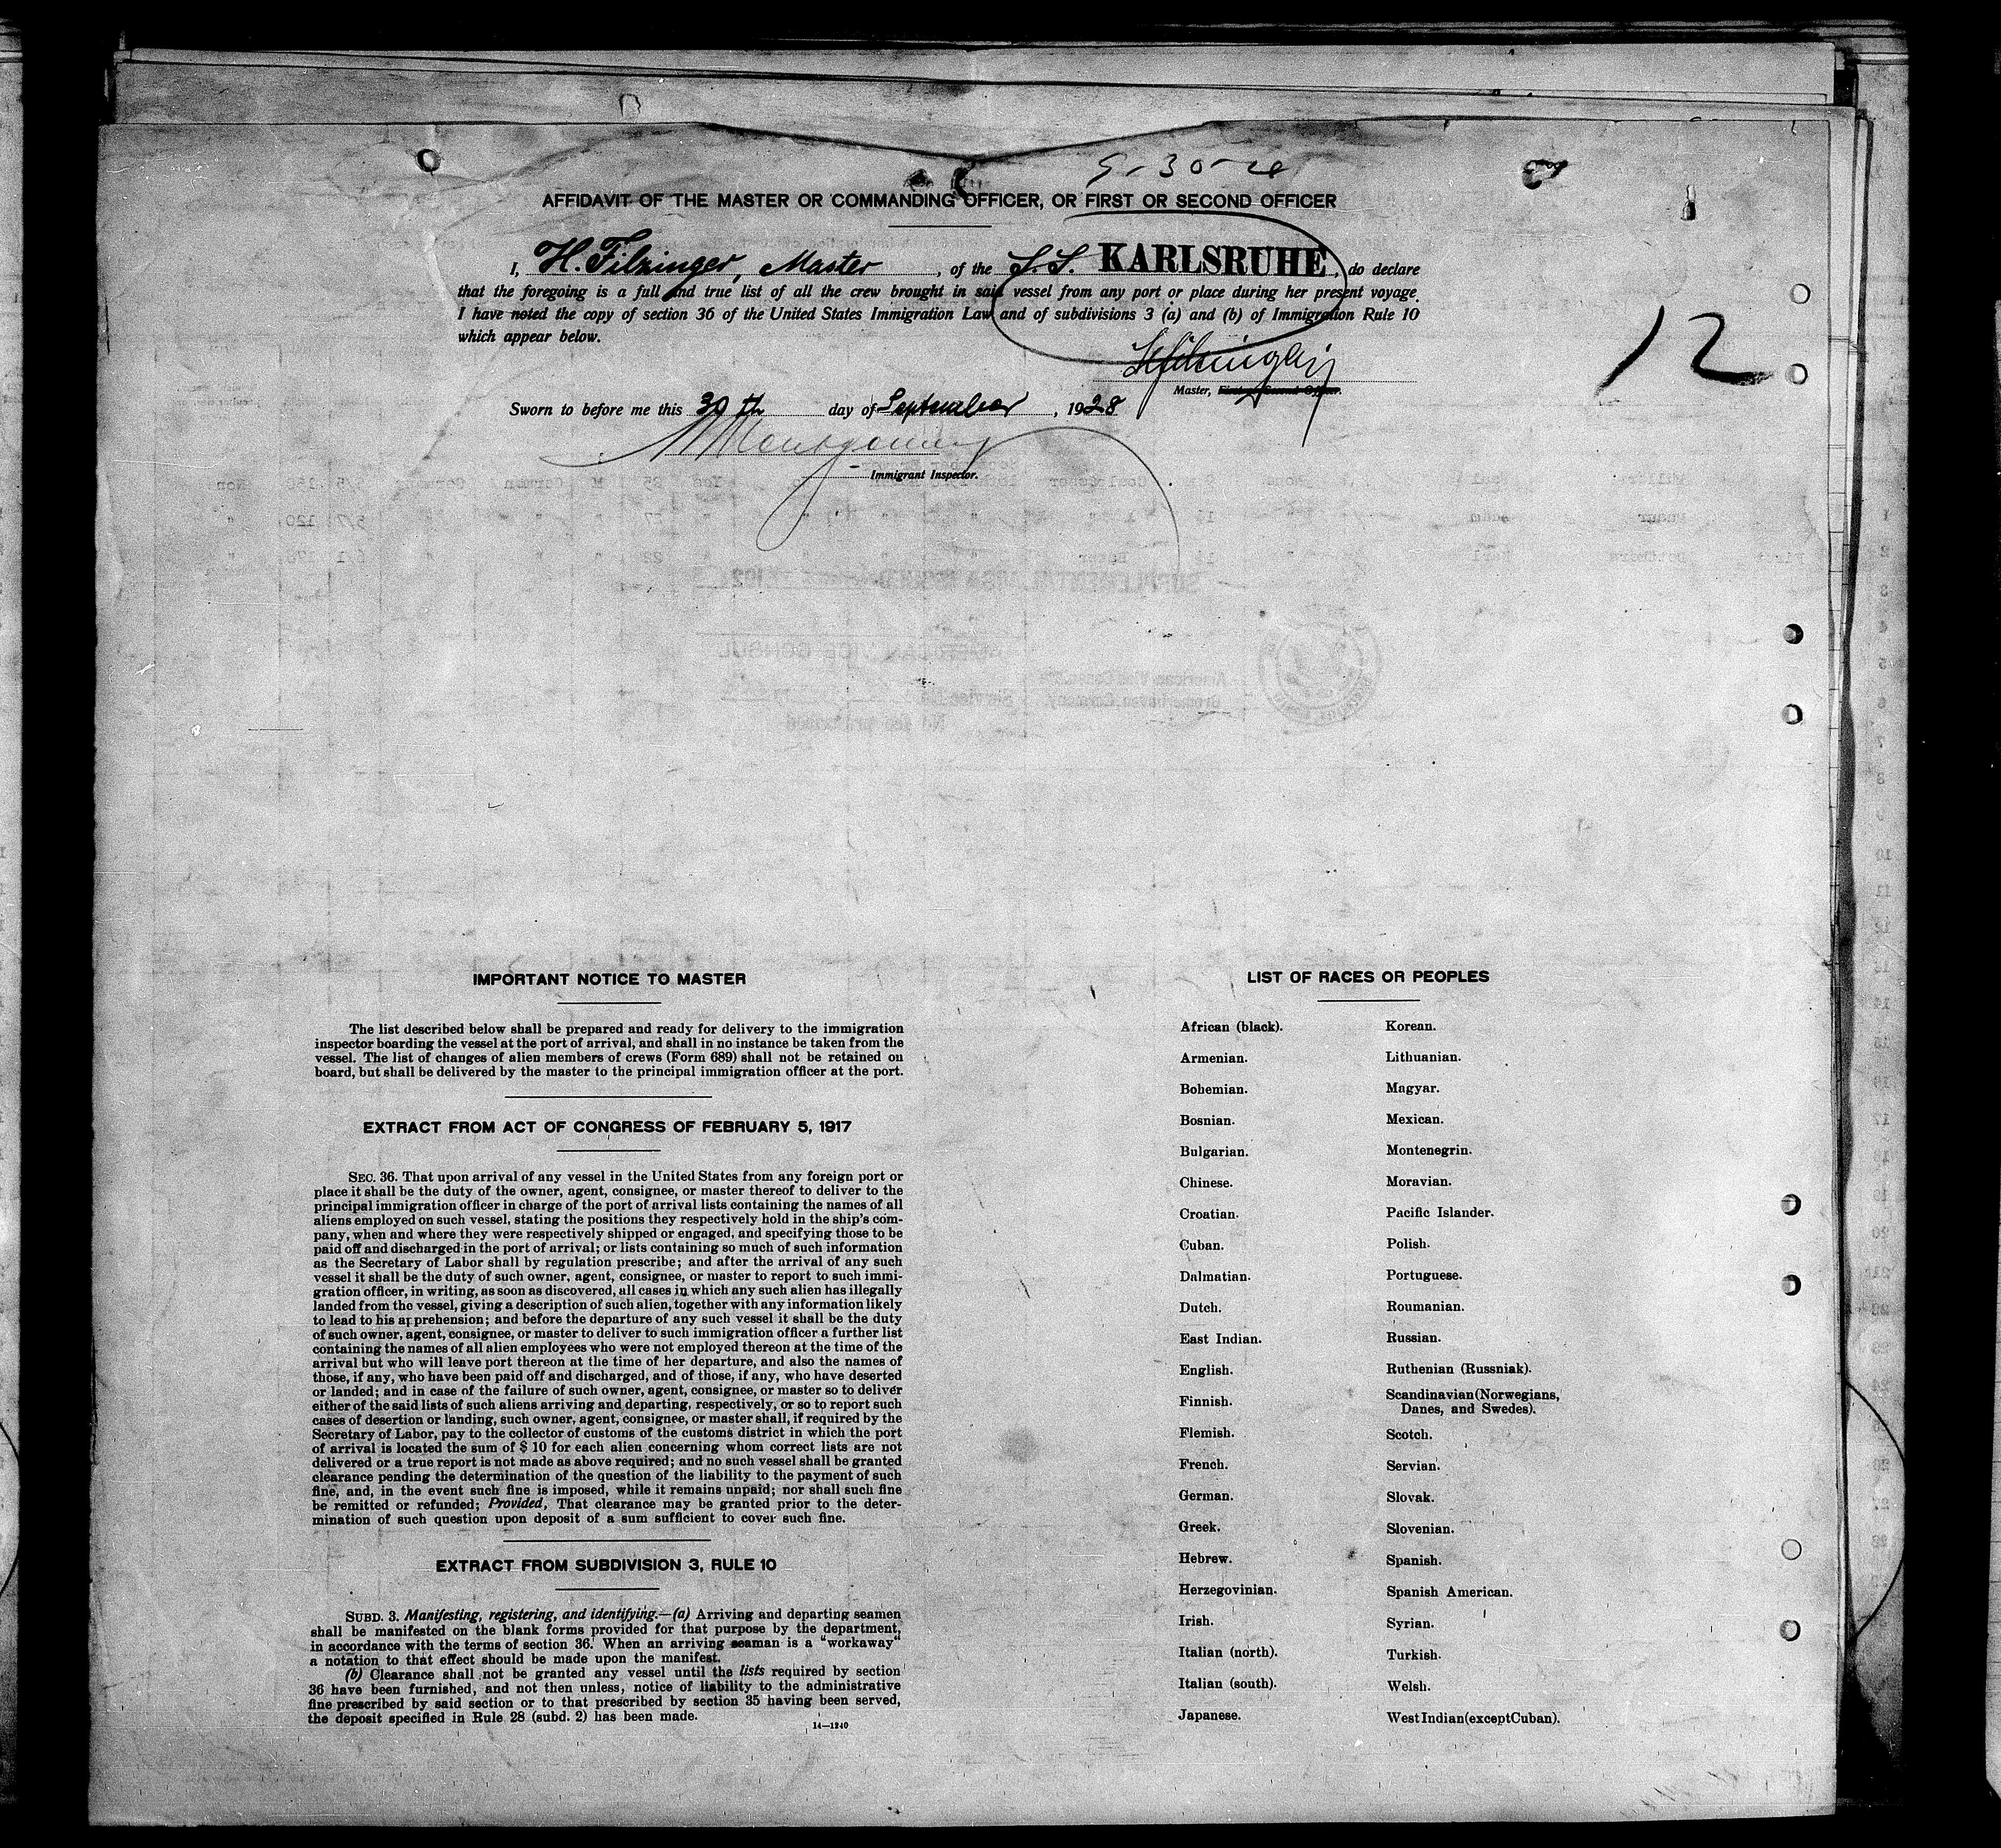 9-30-28
AFFIDAVIT OF THE MASTER OR COMMANDING OFFICER, OR FIRST OR SECOND OFFICER
I, H. Filzinger, Master, of the S.S. KARLSRUHE, do declare
that the foregoing is a full and true list of all the crew brought in said vessel from any port or place during her present voyage.
I have noted the copy of section 36 of the United States Immigration Law and of subdivisions 3 (a) and (b) of Immigration Rule 10
which appear below.
12
HFilzinger
Master, First or Second Officer.
Sworn to before me this 30th day of September, 1928
Montgomery
Immigrant Inspector.
IMPORTANT NOTICE TO MASTER
The list described below shall be prepared and ready for delivery to the immigration
inspector boarding the vessel at the port of arrival, and shall in no instance be taken from the
vessel. The list of changes of alien members of crews (Form 689) shall not be retained on
board, but shall be delivered by the master to the principal immigration officer at the port.
EXTRACT FROM ACT OF CONGRESS OF FEBRUARY 5, 1917
SEC. 36. That upon arrival of any vessel in the United States from any foreign port or
place it shall be the duty of the owner, agent, consignee, or master thereof to deliver to the
principal immigration officer in charge of the port of arrival lists containing the names of all
aliens employed on such vessel, stating the positions they respectively hold in the ship's com-
pany, when and where they were respectively shipped or engaged, and specifying those to be
paid off and discharged in the port of arrival; or lists containing so much of such information
as the Secretary of Labor shall by regulation prescribe; and after the arrival of any such
vessel it shall be the duty of such owner, agent, consignee, or master to report to such immi-
gration officer, in writing, as soon as discovered, all cases in which any such alien has illegally
landed from the vessel, giving a description of such alien, together with any information likely
to lead to his apprehension; and before the departure of any such vessel it shall be the duty
of such owner, agent, consignee, or master to deliver to such immigration officer a further list
containing the names of all alien employees who were not employed thereon at the time of the
arrival but who will leave port thereon at the time of her departure, and also the names of
those, if any, who have been paid off and discharged, and of those, if any, who have deserted
or landed; and in case of the failure of such owner, agent, consignee, or master so to deliver
either of the said lists of such aliens arriving and departing, respectively, or so to report such
cases of desertion or landing, such owner, agent, consignee, or master shall, if required by the
Secretary of Labor, pay to the collector of customs of the customs district in which the port
of arrival is located the sum of $ 10 for each alien concerning whom correct lists are not
delivered or a true report is not made as above required; and no such vessel shall be granted
clearance pending the determination of the question of the liability to the payment of such
fine, and, in the event such fine is imposed, while it remains unpaid; nor shall such fine
be remitted or refunded; Provided, That clearance may be granted prior to the deter-
mination of such question upon deposit of a sum sufficient to cover such fine.
EXTRACT FROM SUBDIVISION 3, RULE 10
SUBD. 3. Manifesting, registering, and identifying.—(a) Arriving and departing seamen
shall be manifested on the blank forms provided for that purpose by the department,
in accordance with the terms of section 36. When an arriving seaman is a "workaway"
a notation to that effect should be made upon the manifest.
(b) Clearance shall not be granted any vessel until the lists required by section
36 have been furnished, and not then unless, notice of liability to the administrative
fine prescribed by said section or to that prescribed by section 35 having been served,
the deposit specified in Rule 28 (subd. 2) has been made.
14—1240
LIST OF RACES OR PEOPLES
African (black).
Armenian.
Bohemian.
Bosnian.
Bulgarian.
Chinese.
Croatian.
Cuban.
Dalmatian.
Dutch.
East Indian.
English.
Finnish.
Flemish.
French.
German.
Greek.
Hebrew.
Herzegovinian.
Irish.
Italian (north).
Italian (south).
Japanese.
Korean.
Lithuanian.
Magyar.
Mexican.
Montenegrin.
Moravian.
Pacific Islander.
Polish.
Portuguese.
Roumanian.
Russian.
Ruthenian (Russniak).
Scandinavian (Norwegians,
Danes, and Swedes).
Scotch.
Servian.
Slovak.
Slovenian.
Spanish.
Spanish American.
Syrian.
Turkish.
Welsh.
West Indian (except Cuban).